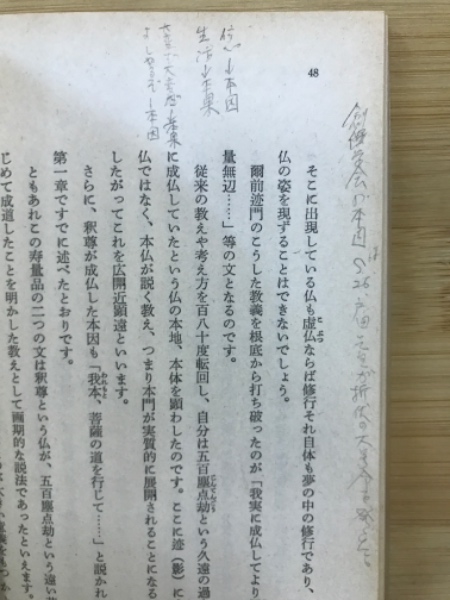 48
信心↓本因
生活↓本果
創価学会の本因は S26.戸田
そこに出現している仏も虚仏ならば修行それ自体も夢の中の修行であり、
仏の姿を現ずることはできないでしょう。
爾前迹門のこうした教義を根底から打ち破ったのが「我実に成仏してより
量無辺……」等の文となるのです。
従来の教えや考え方を百八十度転回し、自分は五百塵点劫という久遠の過
に成仏していたという仏の本地、本体を顕わしたのです。ここに迹（影）に
仏ではなく、本仏が説く教え、つまり本門が実質的に展開されることになる
したがってこれを広開近顕遠といいます。
さらに、釈尊が成仏した本因も「我本、菩薩の道を行じて……」と説かれ
第一章ですでに述べたとおりです。
ともあれこの寿量品の二つの文は釈尊という仏が、五百塵点劫という遠い
じめて成道したことを明かした教えとして画期的な説法であったといえます。